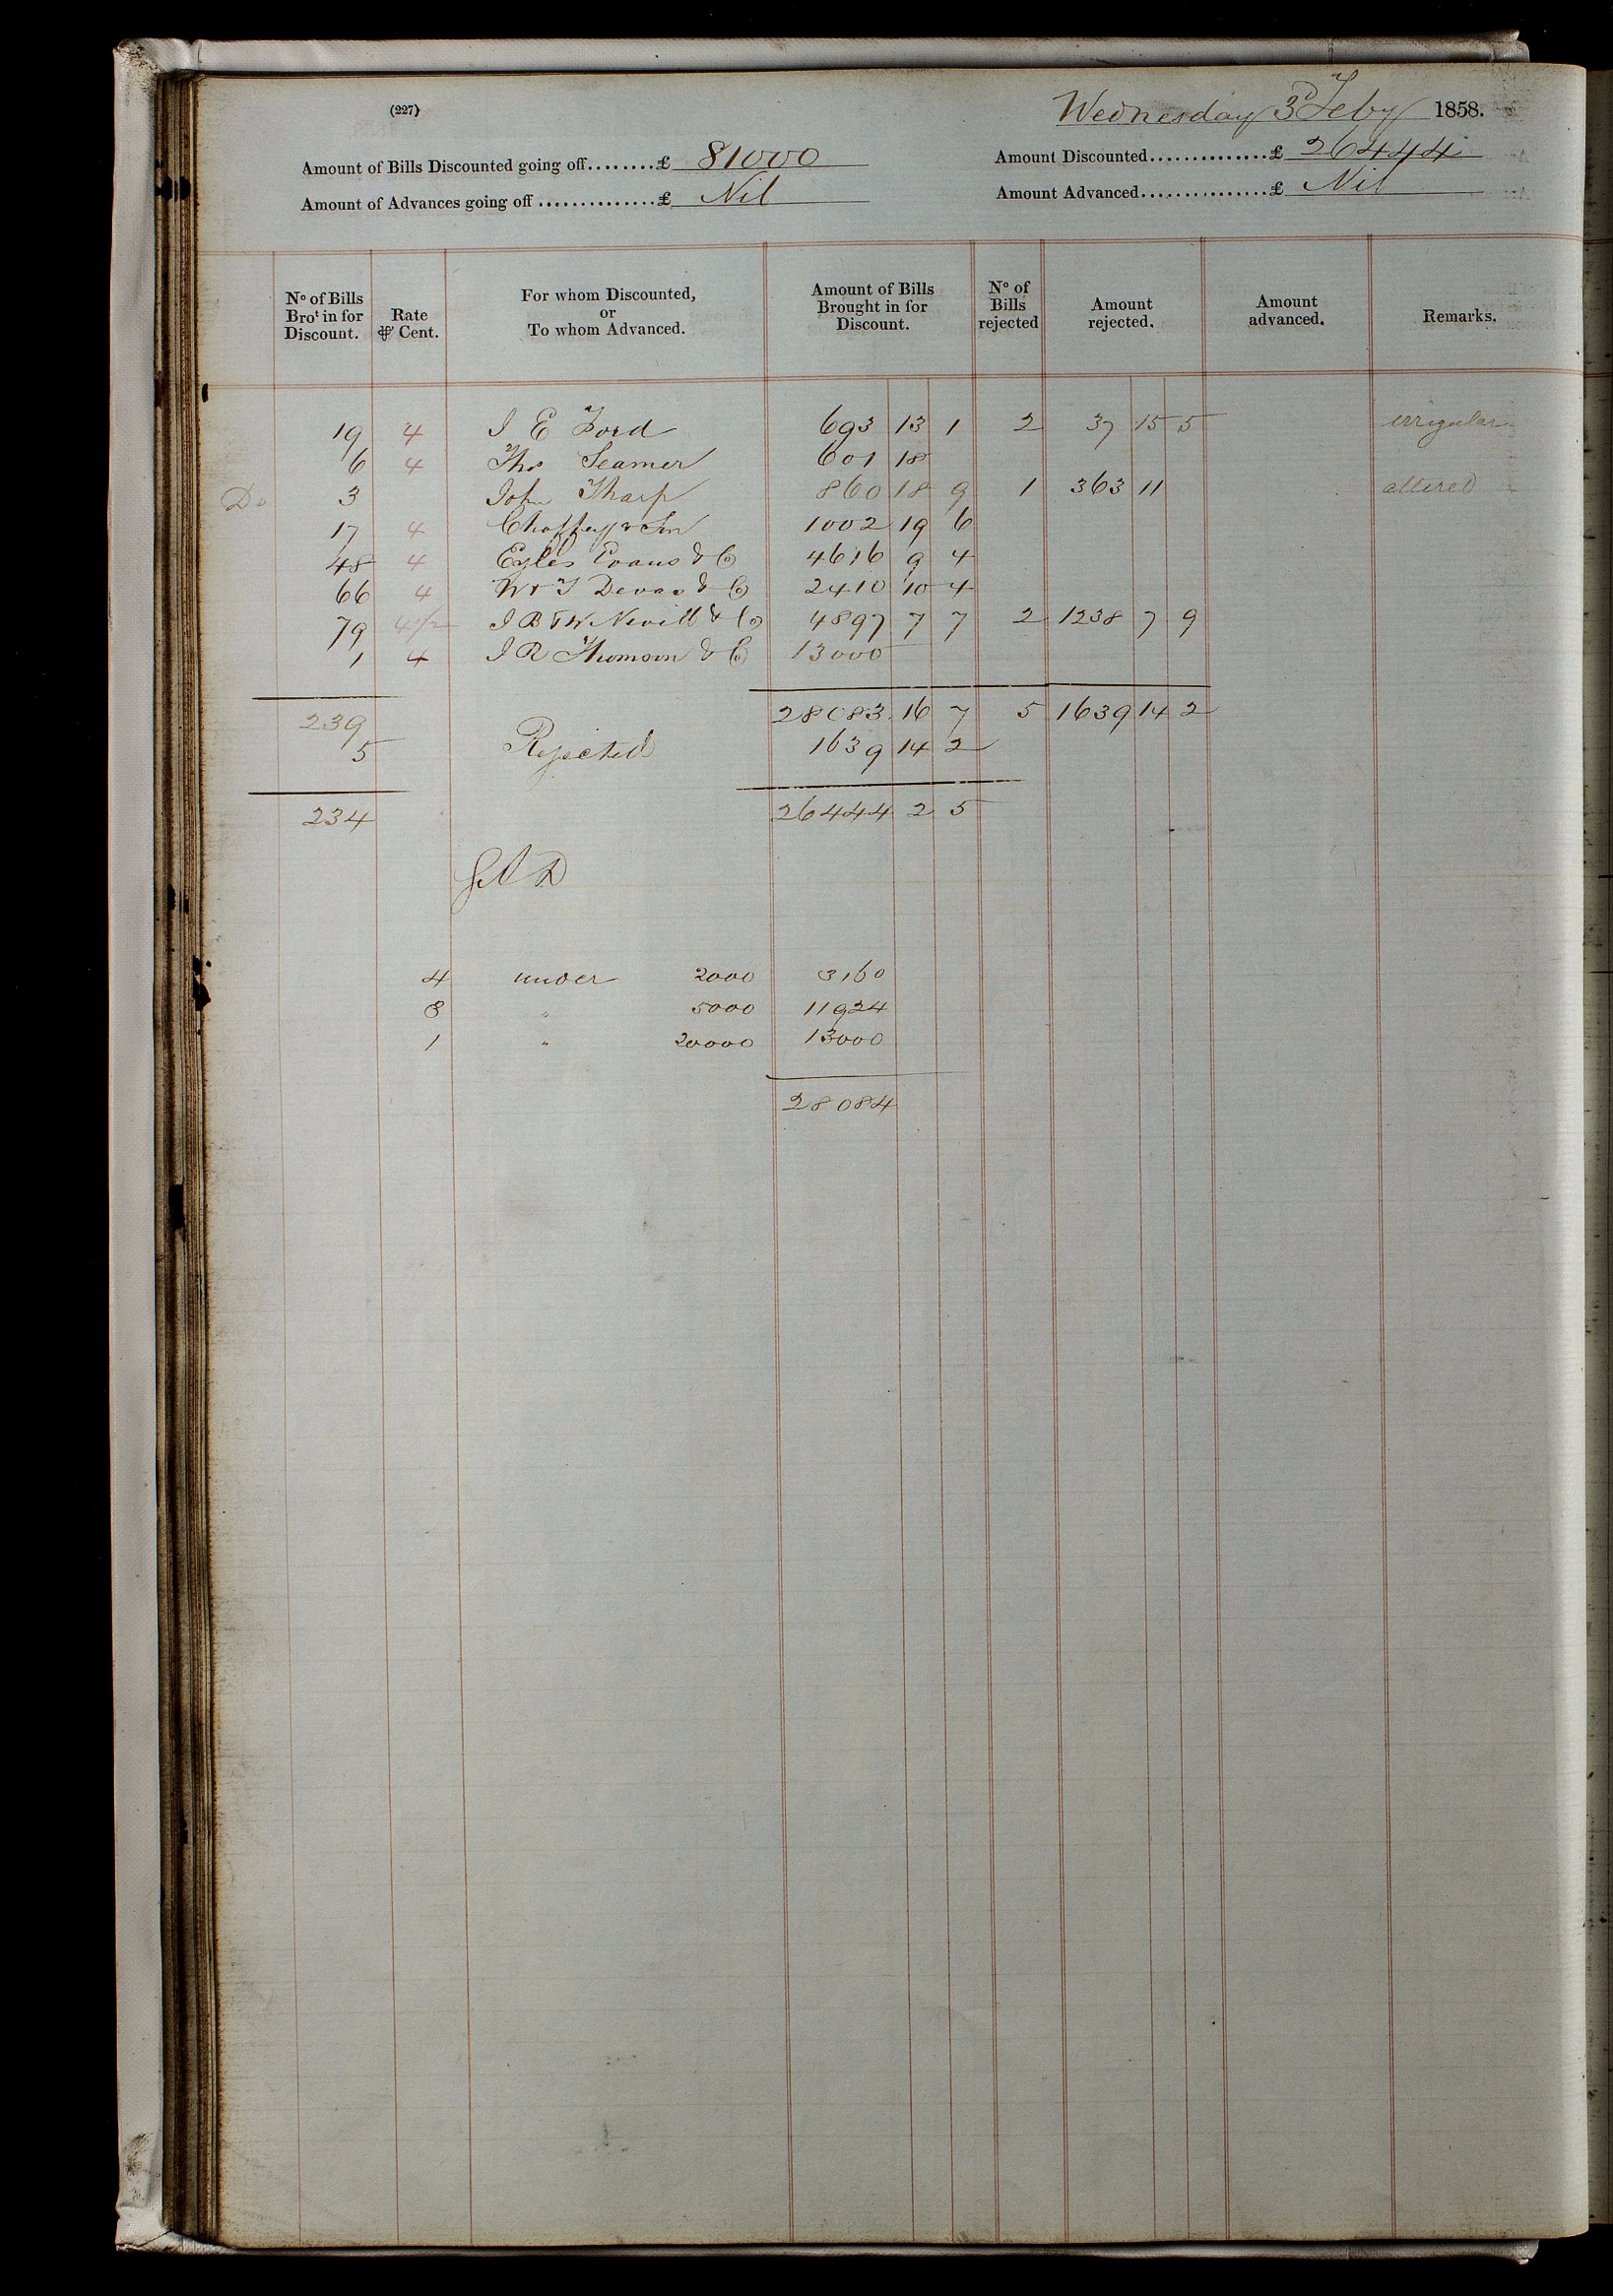 (227)
Wednesday 3d Feby 1858.
Amount of Bills Discounted going off........£ 81000
Amount Discounted...............£ 26444
Amount of Advances going off ..............£ Nil
Amount Advanced................£ Nil
No of Bills Brot in for Discount. Rate ⅌ Cent. For whom Discounted, or To whom Advanced. Amount of Bills Brought in for Discount. No of Bills rejected Amount rejected. Amount advanced. Remarks.
19 4 J E Ford 693 13 1 2 37 15 5 irregular
6 4 Thos Seamer 601 18
Do 3 John Tharp 860 18 9 1 363 11 altered
17 4 Chaffey & Son 1002 19 6
48 4 Eyles Evans & Co 4616 9 4
66 4 W & T Devas & Co 2410 10 4
79 4 1/2 J B & W Nevill & Co 4897 7 7 2 1238 7 9
1 4 J R Thomson & Co 13000
239 28083 16 7 5 1639 14 2
5 Rejected 1639 14 2
234 26444 2 5
4 under 2000 3160
8 " 5000 11924
1 " 20000 13000
28084